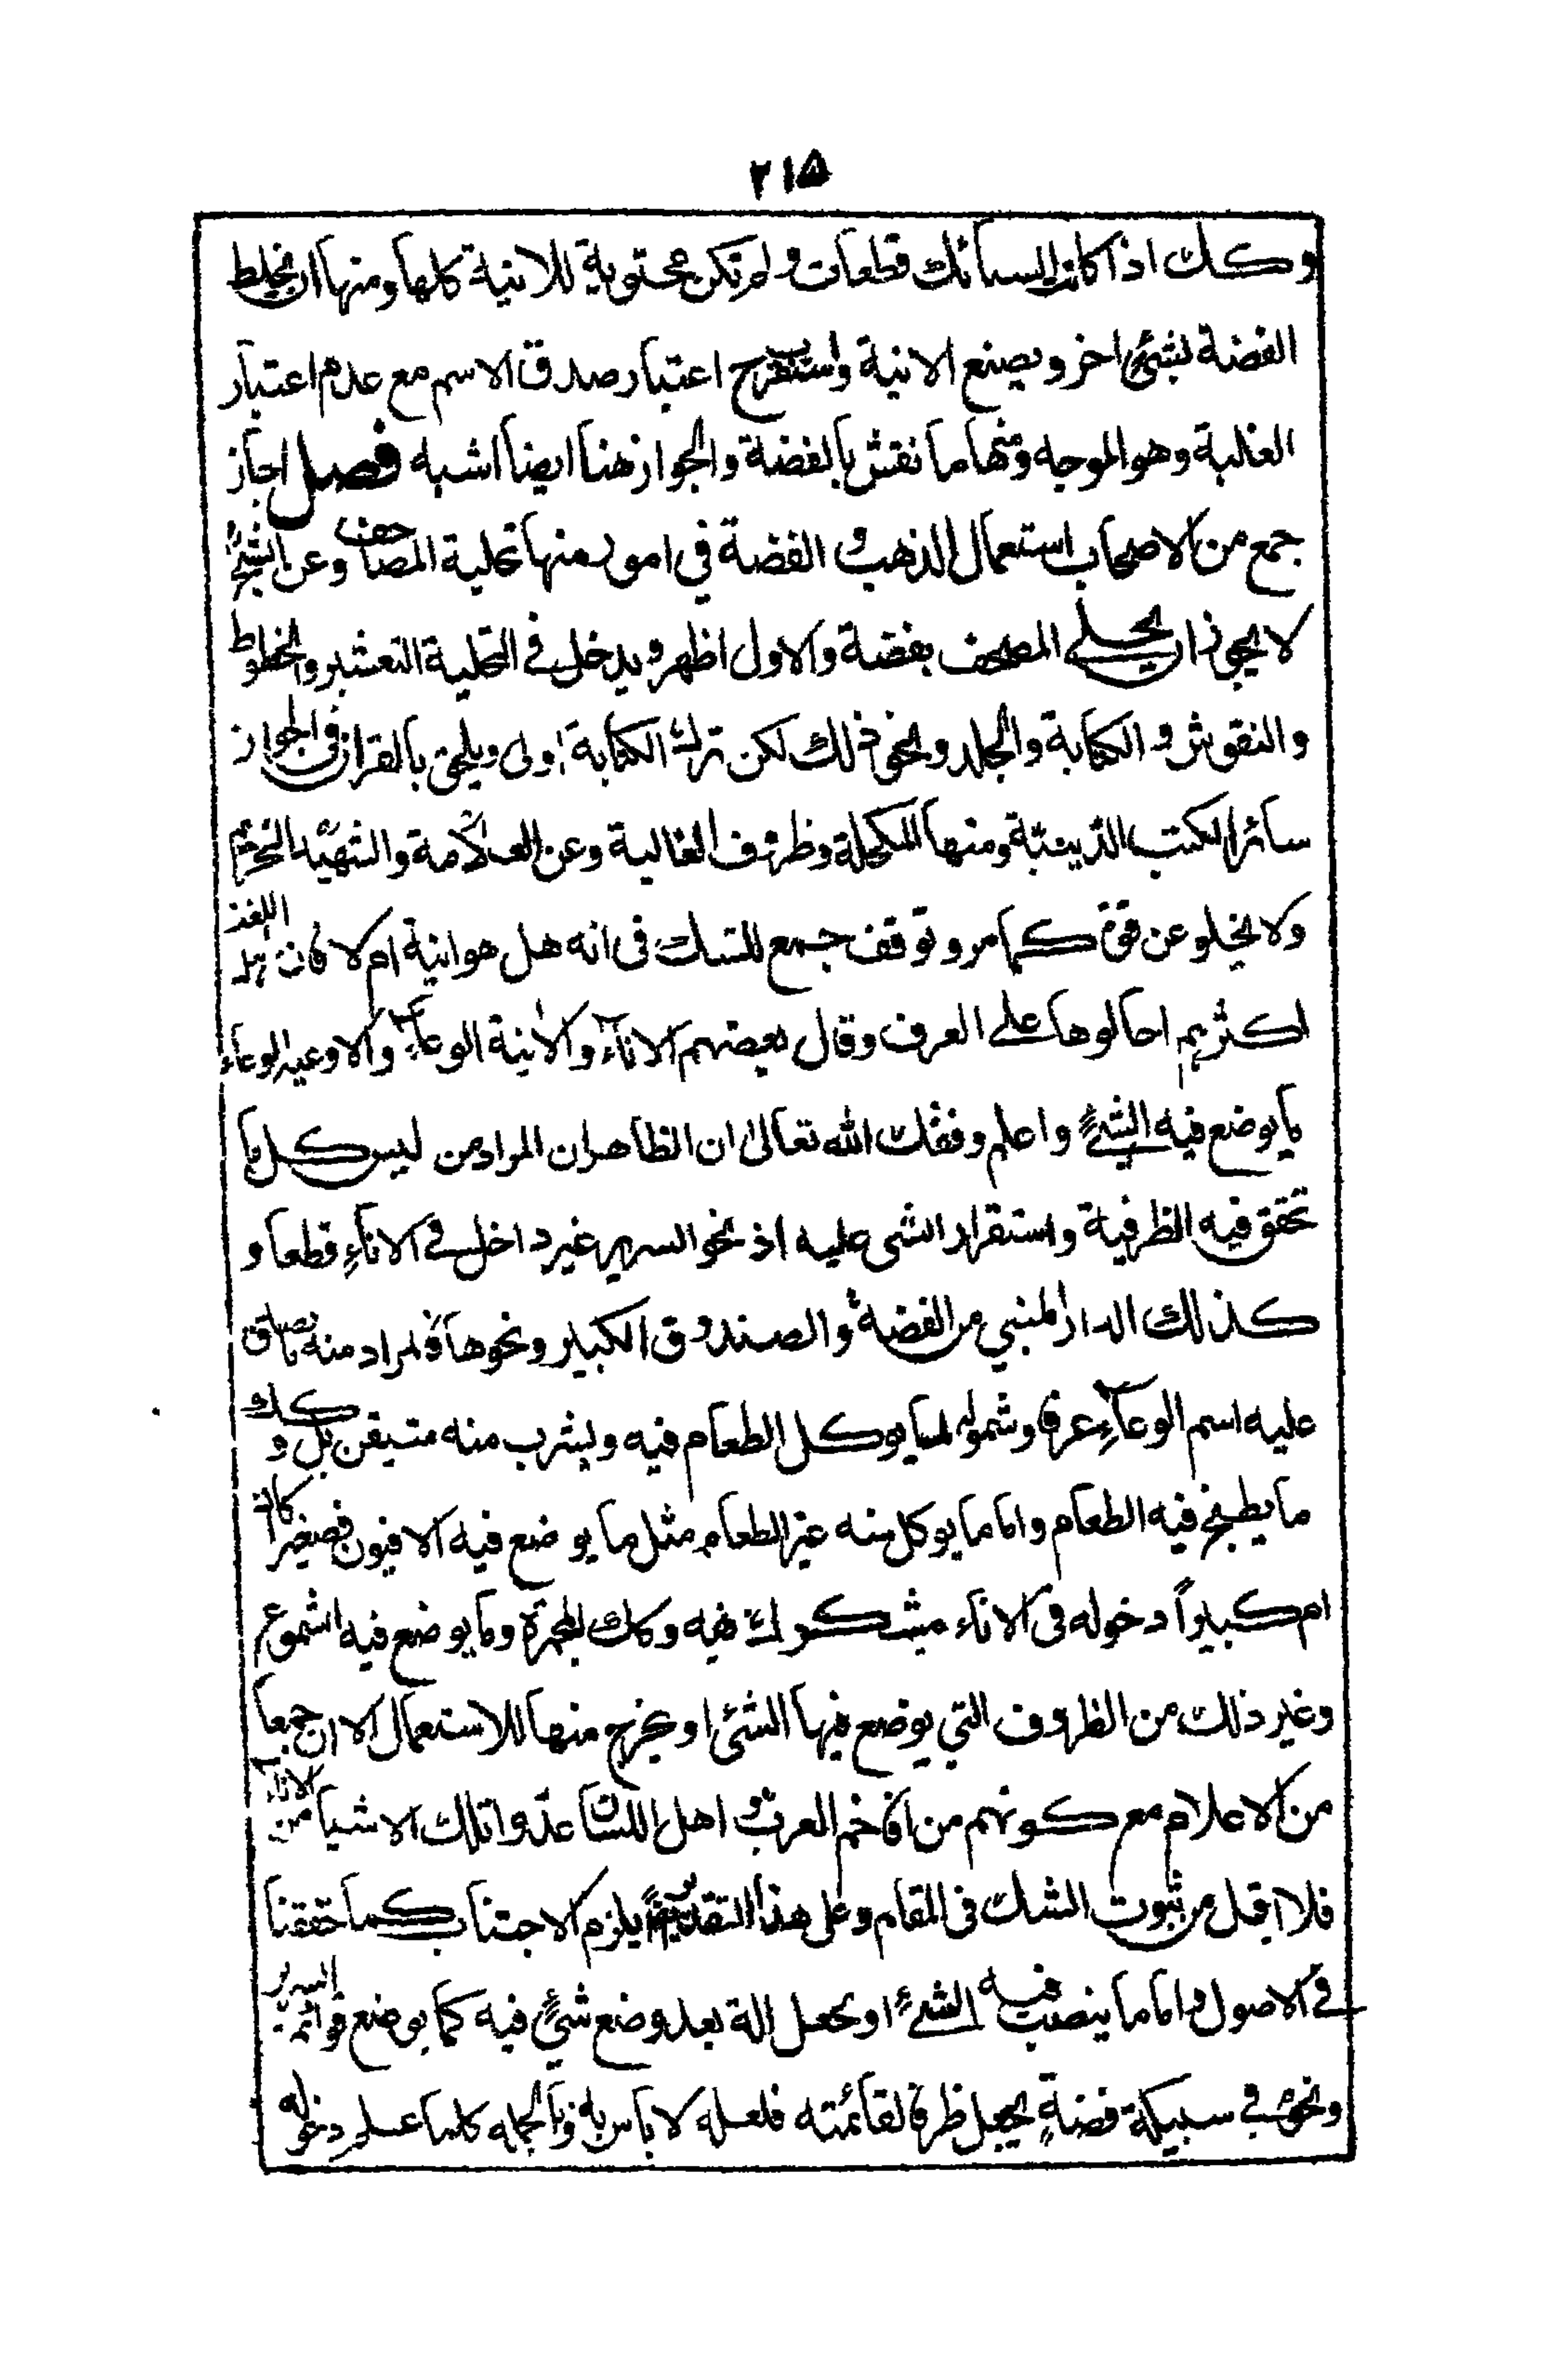 ٢١۵
وكك اذا كان السبائك قطعات ولم تكن محتوية للانية كلها ومنها ان يخلط
الفضة بشئ اخر ويصنع الانية واستقرب اعتبار صدق الاسم مع عدم اعتبار
الغلبة وهو الموجه ومنها ما نقش بالفضة والجواز هنا ايضا اشبه فصل اجاز
جمع من الاصحاب استعمال الذهب و الفضة في امور منها تحلية المصاحف وعن الشيخ
لا يجوز ان يحلى المصحف بفضة والاول اظهر ويدخل في التحلية التعشير والخطوط
والنقوش و الكتابة والجلد ونحو ذلك لكن ترك الكتابة اولى ويلحق بالقران في الجواز
سائر الكتب الدينية ومنها المكحلة وظروف الغالية وعن العلامة والشهيد التحريم
ولا يخلو عن قوة كما مر وتوقف جمع للشك في انه هل هو انية ام لا فان اهل اللغة
اكثرهم احالوها على العرف وقال بعضهم الاناء والانية الوعاء والاوعية الوعاء
ما يوضع فيه الشئ واعلم وفقك الله تعالى ان الظاهر ان المراد من ليس كل ما
تحقق فيه الظرفية واستقرار الشى عليه اذ نحو السرير غير داخل في الاناء قطعا و
كذلك الدار المنبي من الفضة والصندوق الكبير ونحوها فالمراد منه ما صدق
عليه اسم الوعاء عرفا وشموله لما يوكل الطعام فيه ويشرب منه متيقن بل وكك
ما يطبخ فيه الطعام واما ما يوكل منه غير الطعام مثل ما يوضع فيه الافيون صغيرا كان
ام كبيرا دخوله في الاناء مشكوك فيه وكك المجمرة وما يوضع فيه الشموع
وغير ذلك من الظروف التي يوضع فيها الشئ او يخرج منها للاستعمال الا ان جمعا
من الاعلام مع كونهم من افاخم العرب و اهل اللسان عدوا تلك الاشيا من الاناء
فلا اقل من ثبوت الشك في المقام وعلى هذا التقدير يلزم الاجتناب كما حققنا
في الاصول واما ما ينصب فيه الشئ او يجعل الة بعد وضع شئ فيه كما يوضع قوائم السرير
ونحوه في سبيكة فضة يجعل ظرفا لقائمته فلعله لا باس به وبالجمله كلما علم دخوله